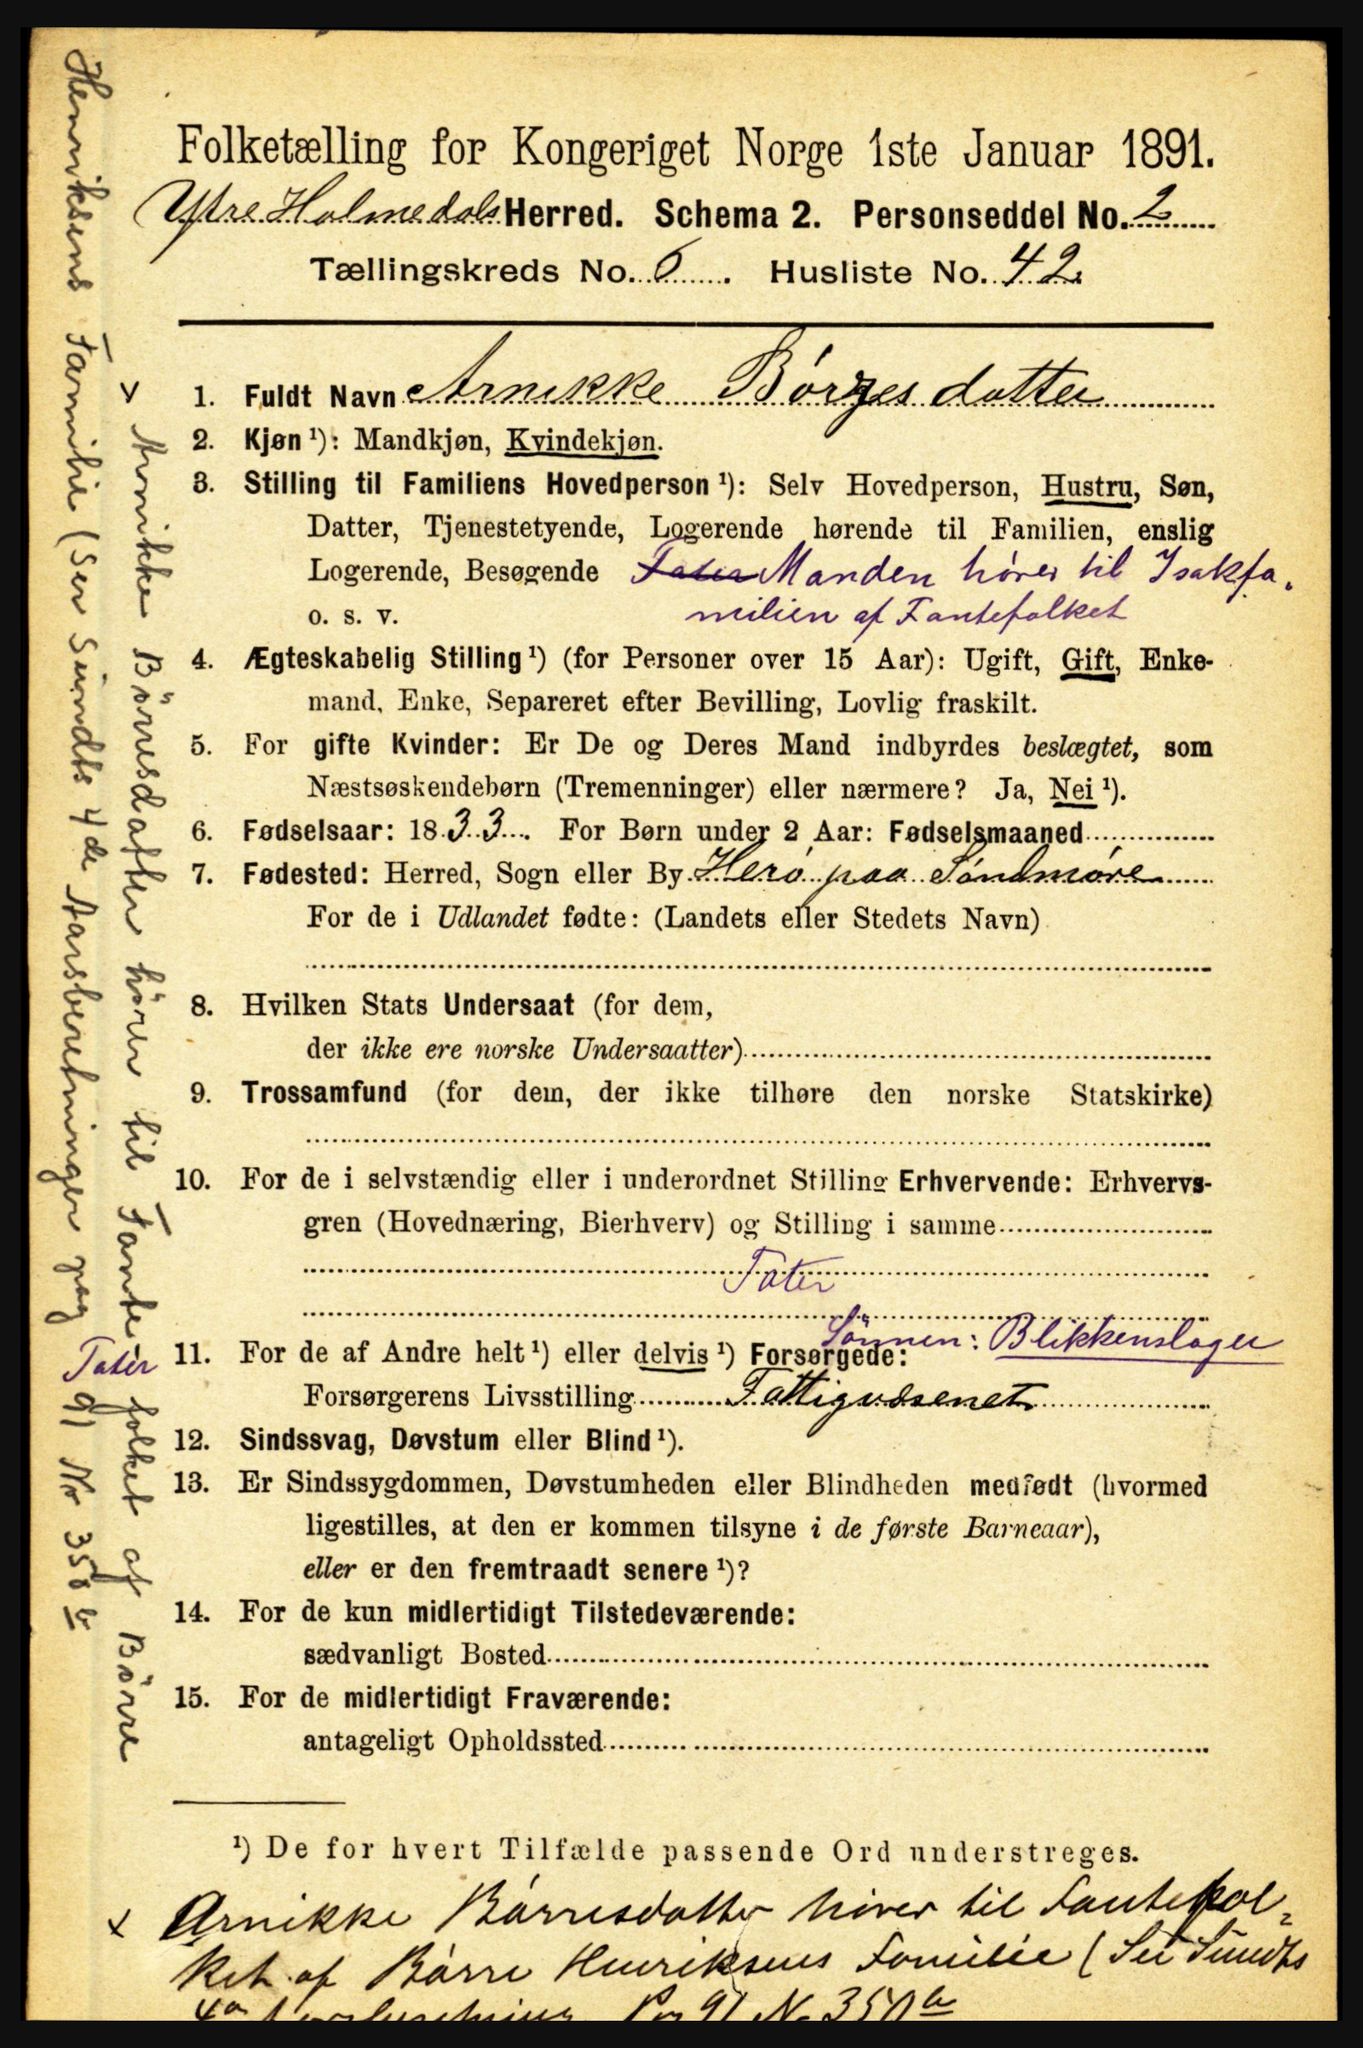 Folketælling for Kongeriget Norge 1ste Januar 1891.
Ytre Holmedals Herred. Schema 2. Personseddel No. 2
Tællingskreds No. 6. Husliste No. 42
1. Fuldt Navn Arnikke Børresdatter
2. Kjøn ¹): Mandkjøn, Kvindekjøn.
3. Stilling til Familiens Hovedperson ¹): Selv Hovedperson, Hustru, Søn,
Datter, Tjenestetyende, Logerende hørende til Familien, enslig
Logerende, Besøgende Tater Manden hører til Isakfa-
o. s. v. milien af Fantefolket
4. Ægteskabelig Stilling ¹) (for Personer over 15 Aar): Ugift, Gift, Enke-
mand, Enke, Separeret efter Bevilling, Lovlig fraskilt.
5. For gifte Kvinder: Er De og Deres Mand indbyrdes beslægtet, som
Næstsøskendebørn (Tremenninger) eller nærmere? Ja, Nei ¹).
6. Fødselsaar: 1833. For Børn under 2 Aar: Fødselsmaaned
7. Fødested: Herred, Sogn eller By Herö paa Söndmöre
For de i Udlandet fødte: (Landets eller Stedets Navn)
8. Hvilken Stats Undersaat (for dem,
der ikke ere norske Undersaatter)
9. Trossamfund (for dem, der ikke tilhøre den norske Statskirke)
10. For de i selvstændig eller i underordnet Stilling Erhvervende: Erhvervs-
gren (Hovednæring, Bierhverv) og Stilling i samme
Tater
Sönnen: Blikkenslager
11. For de af Andre helt ¹) eller delvis ¹) Forsørgede:
Forsørgerens Livsstilling Fattigvæsenet
12. Sindssvag, Døvstum eller Blind ¹).
13. Er Sindssygdommen, Døvstumheden eller Blindheden medfødt (hvormed
ligestilles, at den er kommen tilsyne i de første Barneaar),
eller er den fremtraadt senere ¹)?
14. For de kun midlertidigt Tilstedeværende:
sædvanligt Bosted
15. For de midlertidigt Fraværende:
antageligt Opholdssted
¹) De for hvert Tilfælde passende Ord understreges.
x Arnikke Börresdatter hörer til Fantefol-
ket af Börre Henriksens Familie (Sei Sundts
4de Aarsberetning Pag 91 No 350 b
x Arnikke Börresdatter hörer til Fantefolket af Börre
Henriksens Familie (Ser Sundts 4de Aarsberetninger pag 91 Nr 350 b
Tater